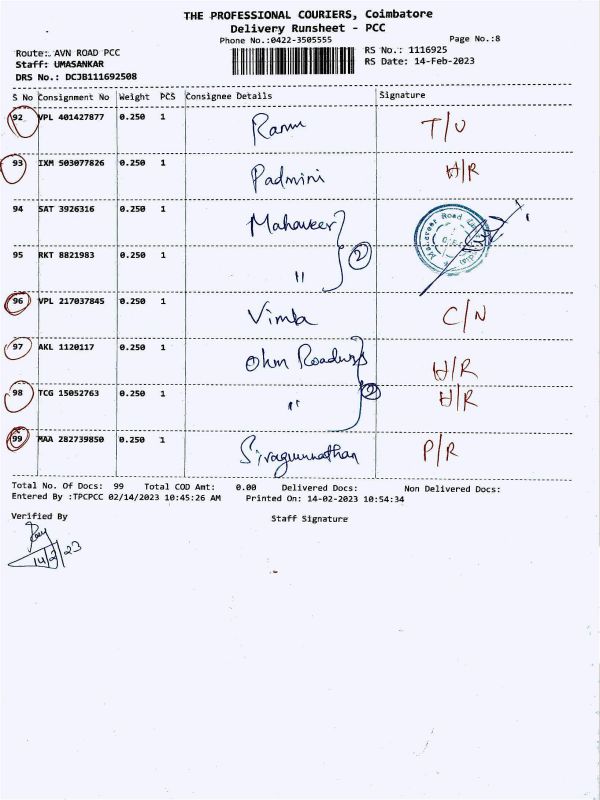 THE PROFESSIONAL COURIERS, Coimbatore
Delivery Runsheet - PCC
Phone No.:0422-3505555 Page No.:8
Route: AVN ROAD PCC RS No.: 1116925
Staff: UMASANKAR RS Date: 14-Feb-2023
DRS No.: DCJB111692508
S No Consignment No Weight PCS Consignee Details Signature
92 VPL 401427877 0.250 1 Ramu T/U
93 IXM 503077826 0.250 1 Padmini H/R
94 SAT 3926316 0.250 1 Mahaveer
95 RKT 8821983 0.250 1 " 2
96 VPL 217037845 0.250 1 Vimla C/N
97 AKL 1120117 0.250 1 Ohm H/R
98 TCG 15052763 0.250 1 " 2 H/R
99 MAA 282739850 0.250 1 P/R
Total No. Of Docs: 99 Total COD Amt: 0.00 Delivered Docs: Non Delivered Docs:
Entered By :TPCPCC 02/14/2023 10:45:26 AM Printed On: 14-02-2023 10:54:34
Verified By Staff Signature
14/2/23